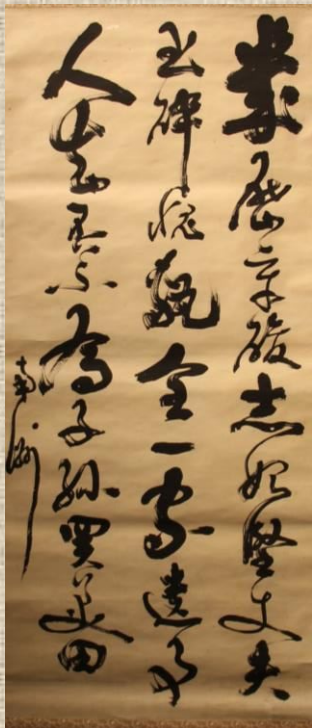 幾歷辛酸志始堅丈夫
玉碎愧甎全一家遺事
人知否不為子孫買美田
南洲